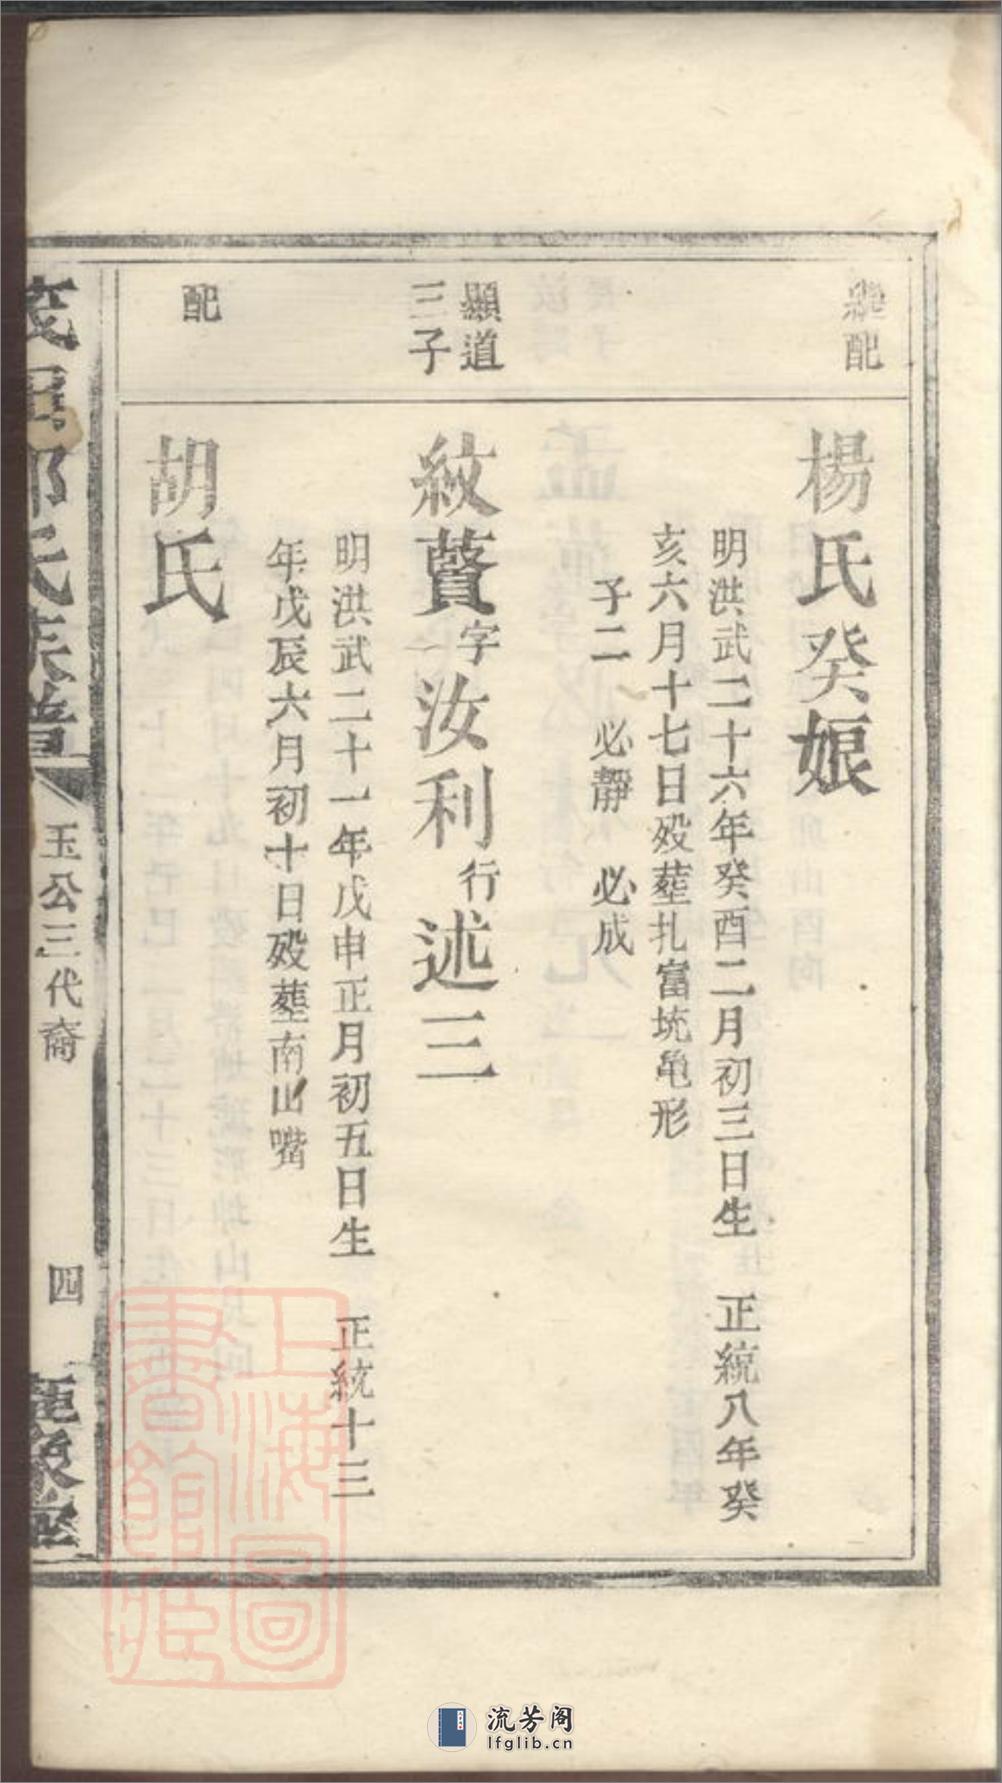 繼配
楊氏癸娘
明洪武二十六年癸酉二月初三日生 正統八年癸
亥六月十七日歿塟扎富坑亀形
子二 必靜 必成
顯道
三子
紋贊字汝利行述三
明洪武二十一年戊申正月初五日生 正統十三
年戊辰六月初十日歿塟南山嘴
配
胡氏
氏族譜
玉公三代裔
四
上海圖
書館藏
流芳阁
lfglib.cn